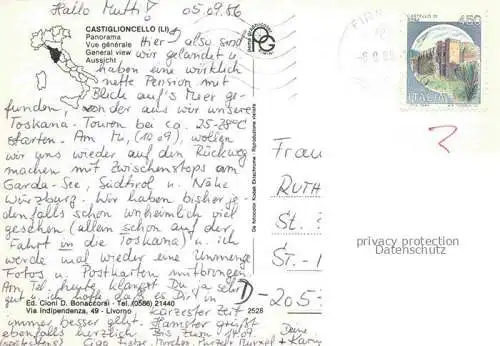 Hallo Mutti! 05.09.86
CASTIGLIONCELLO (LI)
Panorama
Vue générale
General view
Aussicht
Hier also sind
wir gelandet u.
haben eine wirklich
nette Pension mit
Blick auf's Meer ge-
funden, von der aus wir unsere
Toskana-Touren bei ca. 25-28°C
starten. Am (10.09), wollen
wir uns wieder auf den Rückweg
machen mit Zwischenstops am
Garda-See, Südtirol u. Nähe
Würzburg. Wir haben bisher je-
denfalls schon unheimlich viel
gesehen (allein schon auf der
Fahrt in die Toskana) u. ich
werde mal wieder eine Unmenge
Fotos u. Postkarten mitbringen.
Am Tel. heute klangst Du ja sehr
gut u. ich hoffe, daß es Dir in
Ed. Cioni D. Bonaccorsi - Tel. (0586) 21440
Via Indipendenza, 49 - Livorno 2528
kürzester Zeit
immer besser geht. Hamster grüßt
ebenfalls herzlich bis zum 14.09.
Ciao liebe Deine
+ Karin
Da fotocolor Kodak Ektachrome - Riproduzione vietata
PG
FIR
450
ITALIA
Frau
RUTH
St.
ST.-
D-205
privacy protection
Datenschutz